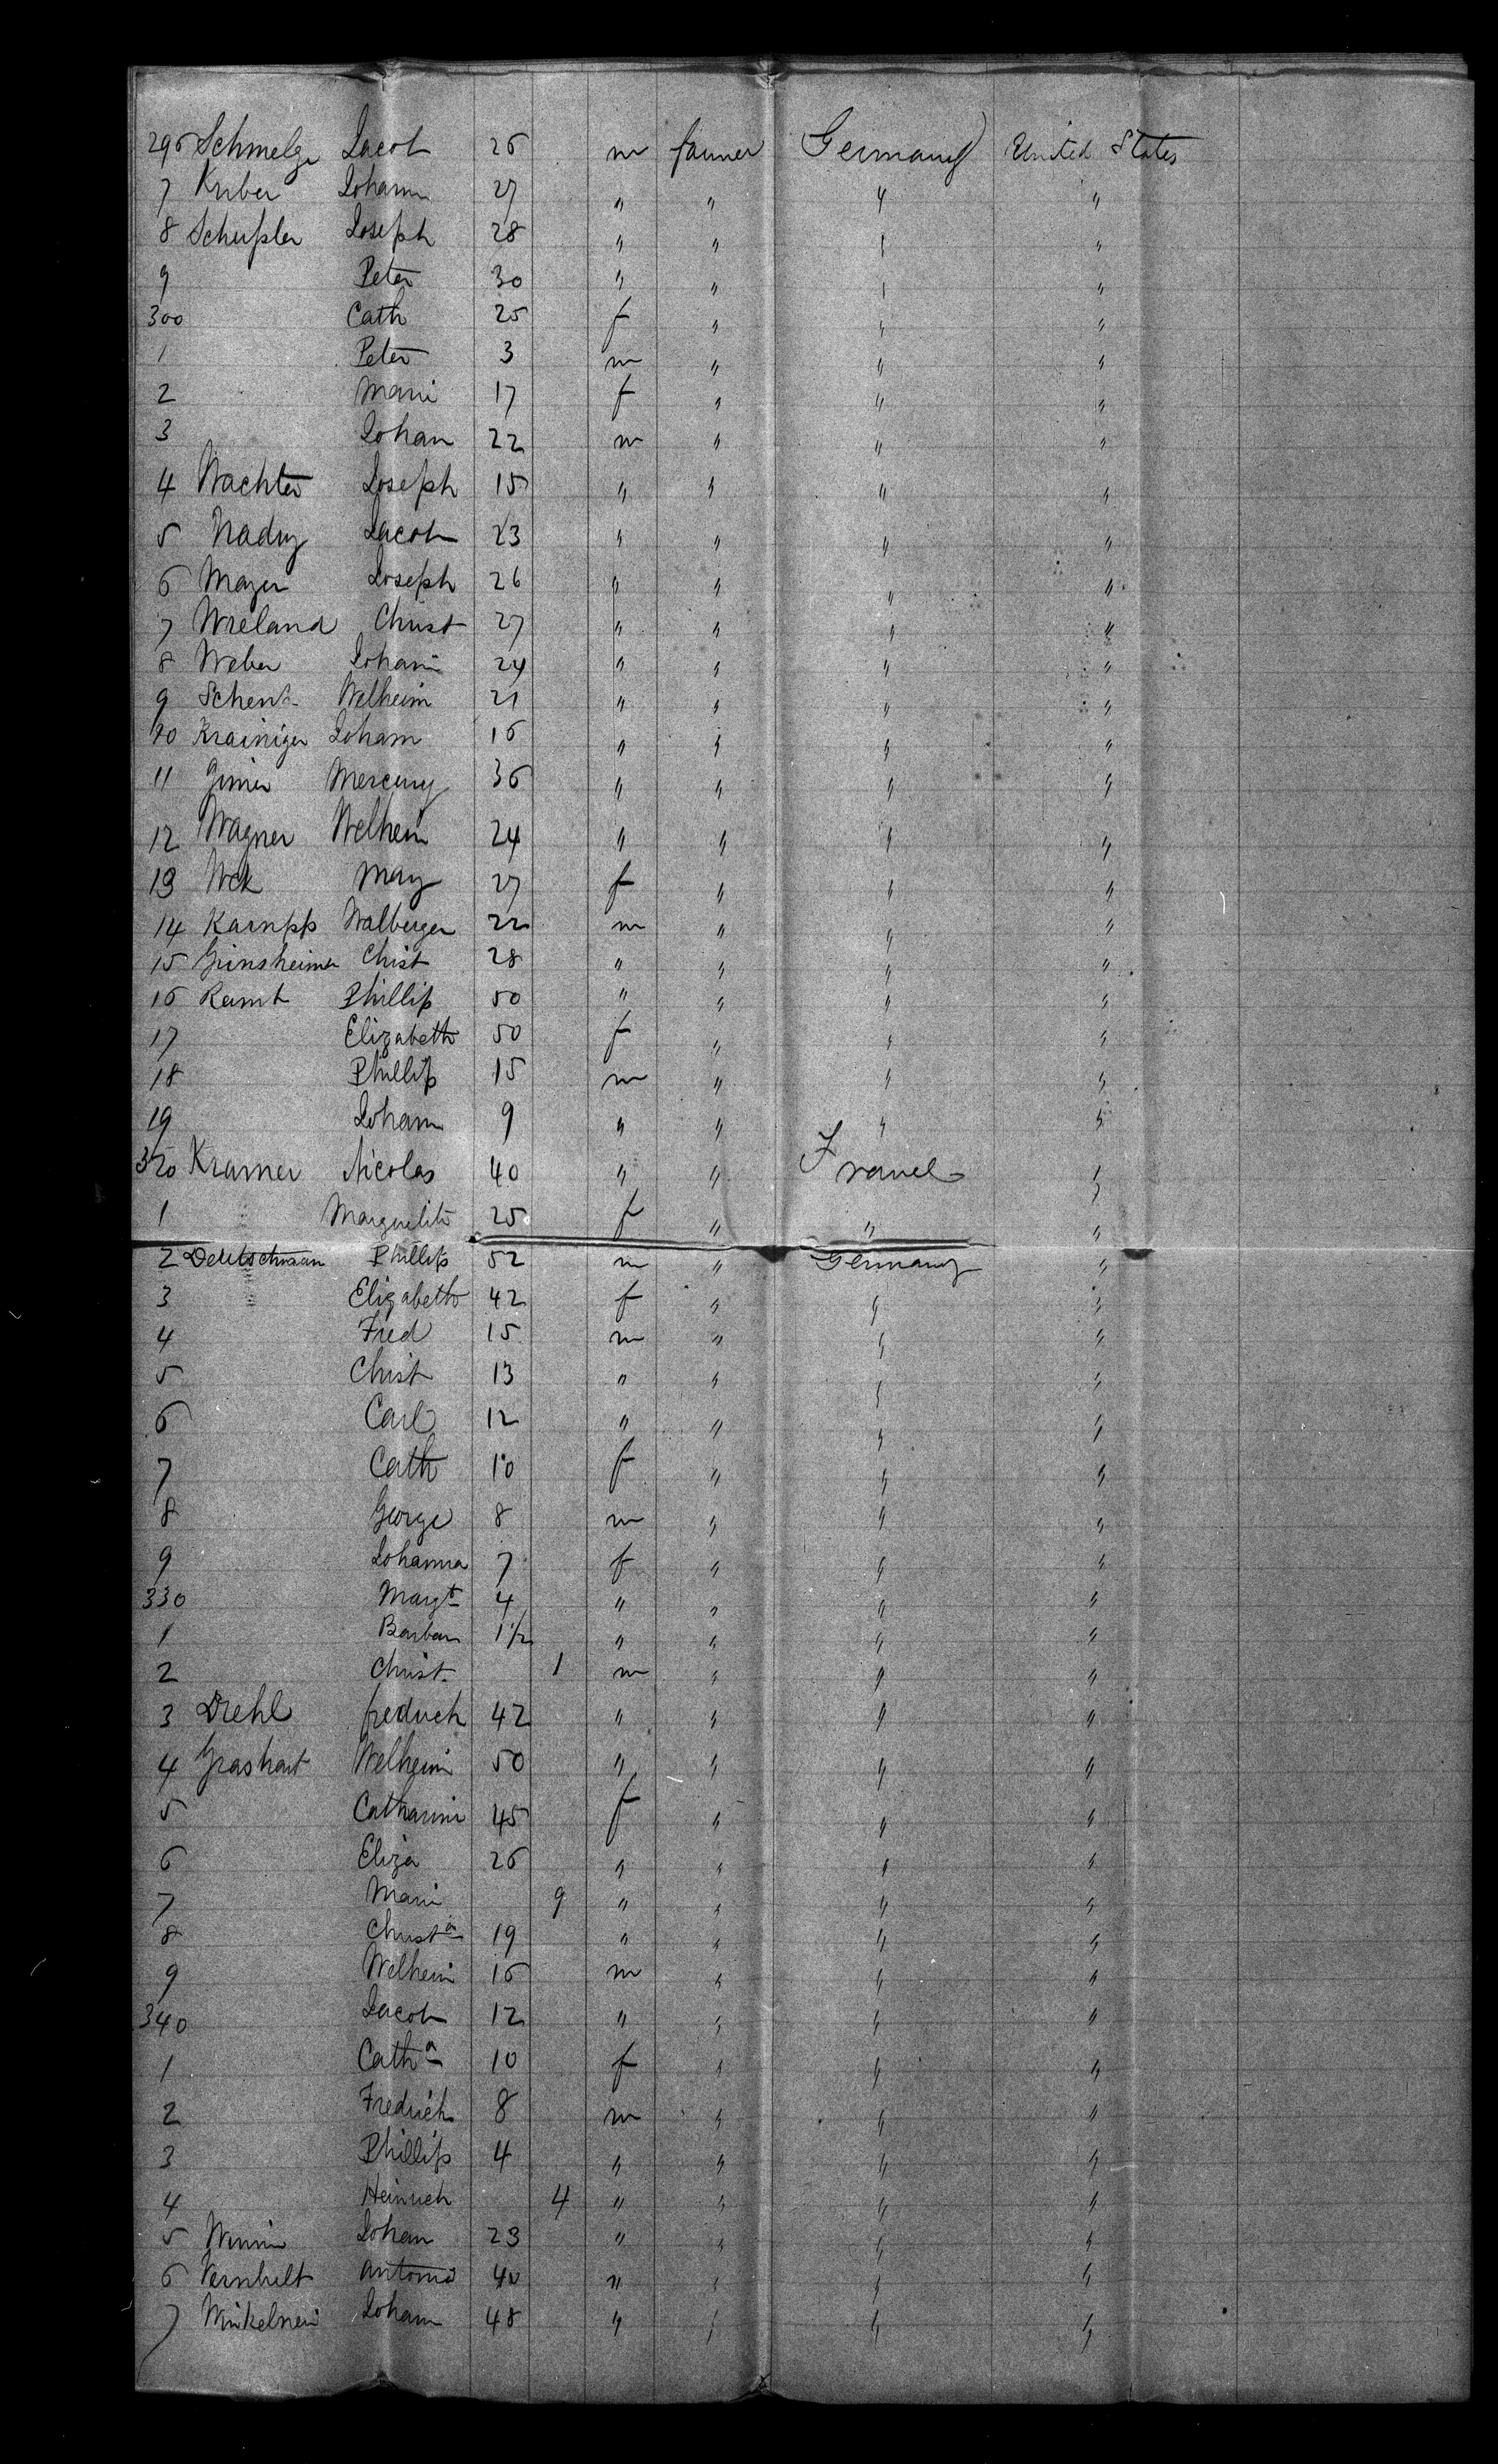 296 Schmelzr Jacob 26 m farmer Germany United States
7 Kuber Johann 27 " " " "
8 Scheissler Joseph 28 " " " "
9 Peter 30 " " " "
300 Cath 25 f " " "
1 Peter 3 m " " "
2 Marie 17 f " " "
3 Johan 22 m " " "
4 Wachter Joseph 15 " " " "
5 Jacob 23 " " " "
6 Mayer Joseph 26 " " " "
7 Wieland Christ 27 " " " "
8 Weber Johann 24 " " " "
9 Schenk Welheim 21 " " " "
10 Krainiger Johann 16 " " " "
11 Mercury 36 " " " "
12 Wagner Welheim 24 " " " "
13 Wek Mary 27 f " " "
14 Karnpp Walberger 22 m " " "
15 Ginsheimer Christ 28 " " " "
16 Ramt Phillip 50 " " " "
17 Elizabeth 50 f " " "
18 Phillip 15 m " " "
19 Johann 9 " " " "
320 Kramer Nicolas 40 " " France "
1 Marguelite 25 f " " "
2 Deutschman Phillip 52 m " Germany "
3 Elizabeth 42 f " " "
4 Fred 15 m " " "
5 Christ 13 " " " "
6 Carl 12 " " " "
7 Cath 10 f " " "
8 George 8 m " " "
9 Johanna 7 f " " "
330 Margt 4 " " " "
1 Barbara 1½ " " " "
2 Christ 1 m " " "
3 Diehl fredrich 42 " " " "
4 Grashart Welheim 50 " " " "
5 Catharine 45 f " " "
6 Eliza 26 " " " "
7 Marie 9 " " " "
8 Christa 19 " " " "
9 Welheim 16 m " " "
340 Jacob 12 " " " "
1 Catha 10 f " " "
2 Fredrich 8 m " " "
3 Phillip 4 " " " "
4 Heinrich 4 " " " "
5 Johan 23 " " " "
6 Vernhelt Antoine 40 " " " "
7 Winkelnein Johann 48 " " " "